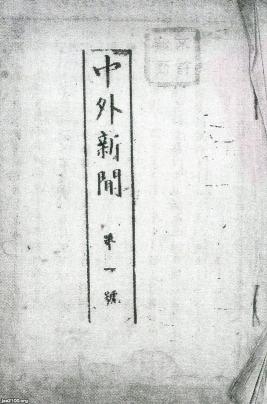 中外新聞 第一號
jaa2100.org